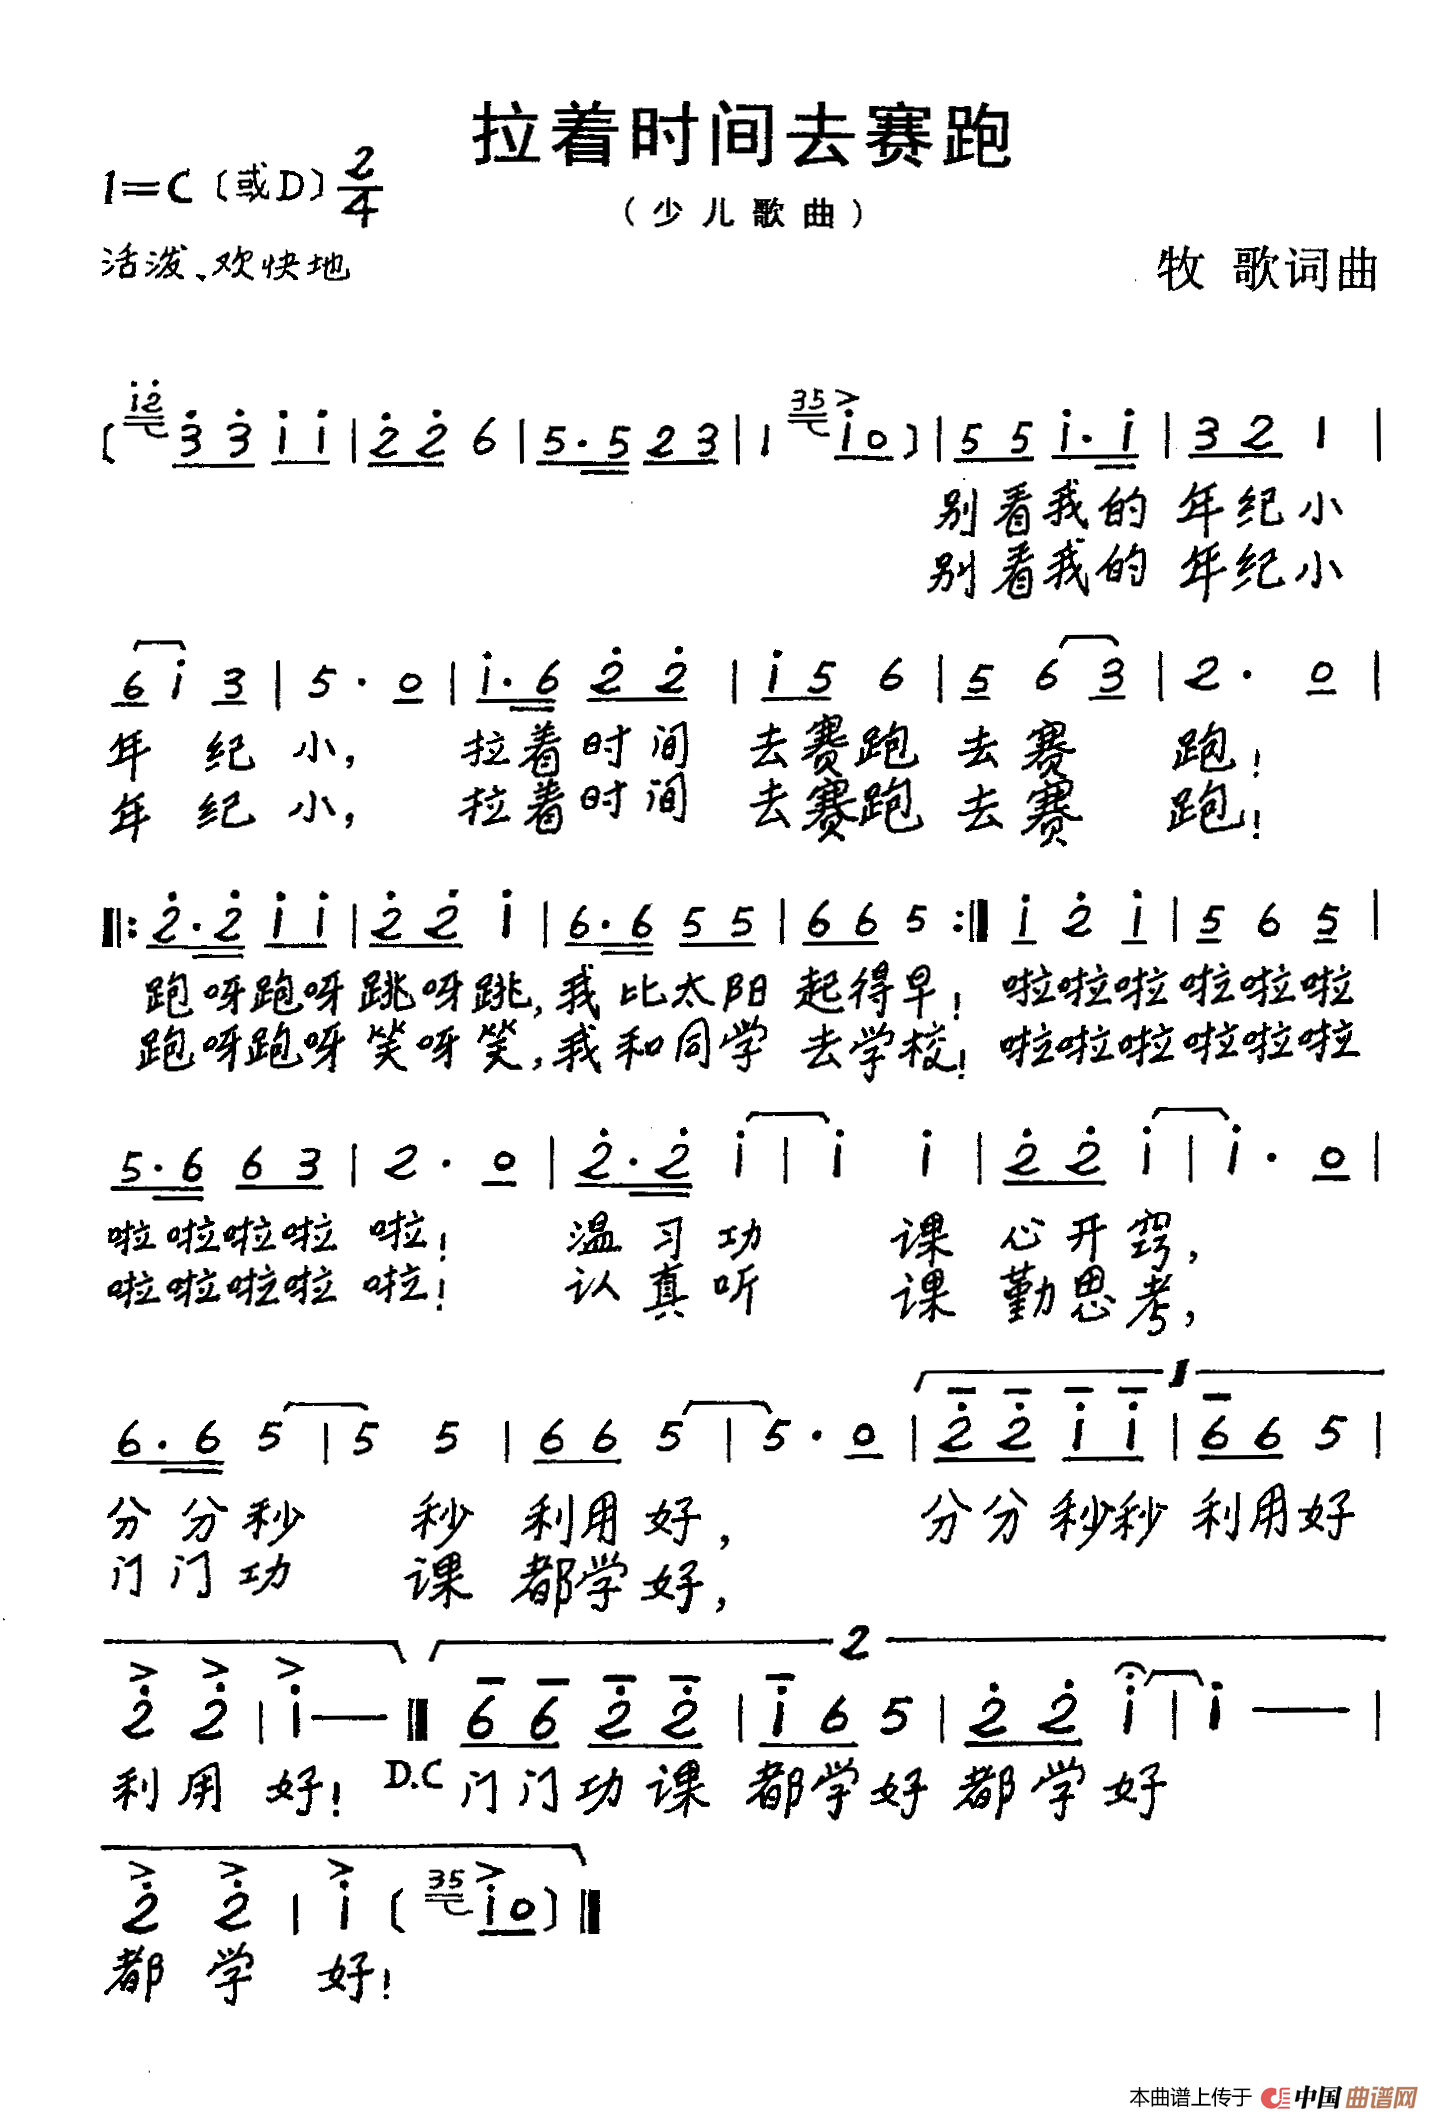 拉着时间去赛跑
1=C（或D）2/4
（少儿歌曲）
活泼、欢快地
牧 歌词曲
〔i̇2̇ 3̇ 3̇ i̇ i̇ | 2̇ 2̇ 6 | 5·5 2 3 | 1 35 > i̇ 0〕| 5 5 i̇·i̇ | 3 2 1 |
别看我的 年纪小
别看我的 年纪小
6 i̇ 3 | 5 · 0 | i̇·6 2̇ 2̇ | i̇ 5 6 | 5 6 3 | 2 · 0 |
年 纪 小， 拉着时间 去赛跑 去赛 跑！
年 纪 小， 拉着时间 去赛跑 去赛 跑！
‖: 2̇·2̇ i̇ i̇ | 2̇ 2̇ i̇ | 6·6 5 5 | 6 6 5 :‖ i̇ 2̇ i̇ | 5 6 5 |
跑呀跑呀 跳呀跳，我比太阳 起得早！ 啦啦啦 啦啦啦
跑呀跑呀 笑呀笑，我和同学 去学校！ 啦啦啦 啦啦啦
5·6 6 3 | 2 · 0 | 2̇·2̇ i̇ | i̇ i̇ | 2̇ 2̇ i̇ | i̇ · 0 |
啦啦啦啦 啦！ 温习功 课 心开窍，
啦啦啦啦 啦！ 认真听 课 勤思考，
1
6·6 5 | 5 5 | 6 6 5 | 5 · 0 | 2̇ 2̇ i̇ i̇ | 6 6 5 |
分分秒 秒 利用好， 分分秒秒 利用好
门门功 课 都学好，
2
> > >
2̇ 2̇ | i̇ — ‖ 6 6 2̇ 2̇ | i̇ 6 5 | 2̇ 2̇ i̇ | i̇ — |
利用 好！ D.C 门门功课 都学好 都学好
> > > 35 >
2̇ 2̇ | i̇ 〔i̇ 0〕‖
都 学 好！
本曲谱上传于 中国曲谱网